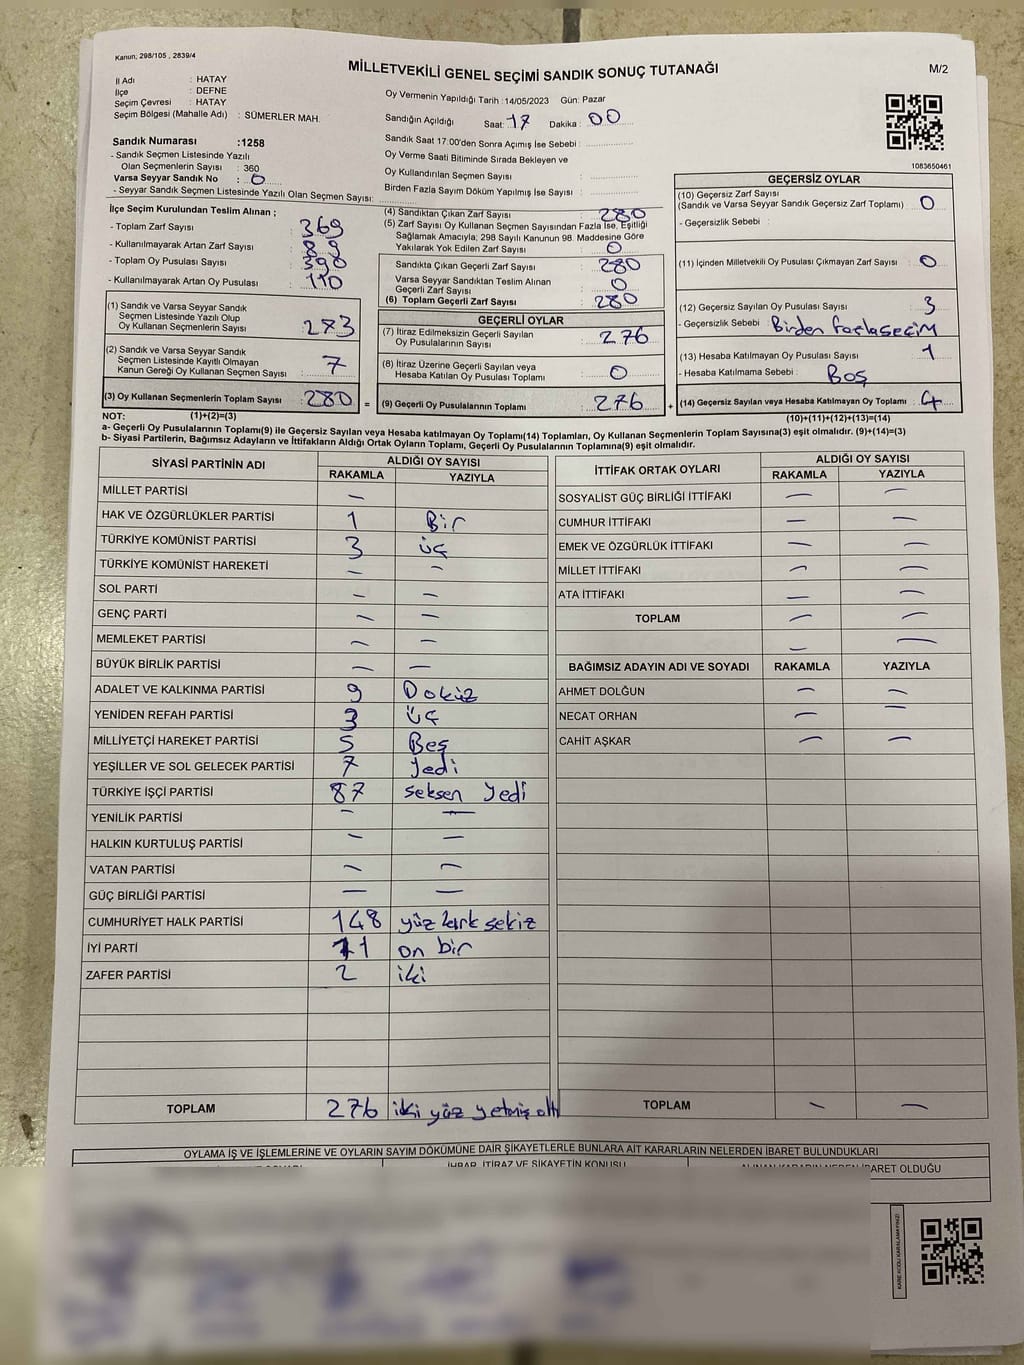 Kanun; 298/105 , 2839/4
MİLLETVEKİLİ GENEL SEÇİMİ SANDIK SONUÇ TUTANAĞI
M/2
İl Adı : HATAY
İlçe : DEFNE
Seçim Çevresi : HATAY
Seçim Bölgesi (Mahalle Adı) : SÜMERLER MAH.
Oy Vermenin Yapıldığı Tarih :14/05/2023 Gün: Pazar
Sandığın Açıldığı Saat: 17 Dakika : 00
Sandık Saat 17:00'den Sonra Açımış İse Sebebi :
Oy Verme Saati Bitiminde Sırada Bekleyen ve
Oy Kullandırılan Seçmen Sayısı :
Birden Fazla Sayım Döküm Yapılmış İse Sayısı :
1083650461
Sandık Numarası :1258
- Sandık Seçmen Listesinde Yazılı
Olan Seçmenlerin Sayısı : 360
Varsa Seyyar Sandık No : 0
- Seyyar Sandık Seçmen Listesinde Yazılı Olan Seçmen Sayısı:
İlçe Seçim Kurulundan Teslim Alınan ;
- Toplam Zarf Sayısı : 369
- Kullanılmayarak Artan Zarf Sayısı : 89
- Toplam Oy Pusulası Sayısı : 390
- Kullanılmayarak Artan Oy Pusulası : 110
(1) Sandık ve Varsa Seyyar Sandık
Seçmen Listesinde Yazılı Olup
Oy Kullanan Seçmenlerin Sayısı : 273
(2) Sandık ve Varsa Seyyar Sandık
Seçmen Listesinde Kayıtlı Olmayan
Kanun Gereği Oy Kullanan Seçmen Sayısı : 7
(3) Oy Kullanan Seçmenlerin Toplam Sayısı : 280
(4) Sandıktan Çıkan Zarf Sayısı : 280
(5) Zarf Sayısı Oy Kullanan Seçmen Sayısından Fazla İse, Eşitliği
Sağlamak Amacıyla; 298 Sayılı Kanunun 98. Maddesine Göre
Yakılarak Yok Edilen Zarf Sayısı : 0
Sandıkta Çıkan Geçerli Zarf Sayısı : 280
Varsa Seyyar Sandıktan Teslim Alınan
Geçerli Zarf Sayısı : 0
(6) Toplam Geçerli Zarf Sayısı : 280
GEÇERLİ OYLAR
(7) İtiraz Edilmeksizin Geçerli Sayılan
Oy Pusulalarının Sayısı : 276
(8) İtiraz Üzerine Geçerli Sayılan veya
Hesaba Katılan Oy Pusulası Toplamı : 0
= (9) Geçerli Oy Pusulalarının Toplamı : 276 +
GEÇERSİZ OYLAR
(10) Geçersiz Zarf Sayısı
(Sandık ve Varsa Seyyar Sandık Geçersiz Zarf Toplamı) : 0
- Geçersizlik Sebebi :
(11) İçinden Milletvekili Oy Pusulası Çıkmayan Zarf Sayısı : 0
(12) Geçersiz Sayılan Oy Pusulası Sayısı : 3
- Geçersizlik Sebebi : Birden fazla seçim
(13) Hesaba Katılmayan Oy Pusulası Sayısı : 1
- Hesaba Katılmama Sebebi : Boş
(14) Geçersiz Sayılan veya Hesaba Katılmayan Oy Toplamı : 4
NOT: (1)+(2)=(3) (10)+(11)+(12)+(13)=(14)
a- Geçerli Oy Pusulalarının Toplamı(9) ile Geçersiz Sayılan veya Hesaba katılmayan Oy Toplamı(14) Toplamları, Oy Kullanan Seçmenlerin Toplam Sayısına(3) eşit olmalıdır. (9)+(14)=(3)
b- Siyasi Partilerin, Bağımsız Adayların ve İttifakların Aldığı Ortak Oyların Toplamı, Geçerli Oy Pusulalarının Toplamına(9) eşit olmalıdır.
SİYASİ PARTİNİN ADI ALDIĞI OY SAYISI
RAKAMLA YAZIYLA
MİLLET PARTİSİ —
HAK VE ÖZGÜRLÜKLER PARTİSİ 1 Bir
TÜRKİYE KOMÜNİST PARTİSİ 3 üç
TÜRKİYE KOMÜNİST HAREKETİ — —
SOL PARTİ — —
GENÇ PARTİ — —
MEMLEKET PARTİSİ — —
BÜYÜK BİRLİK PARTİSİ — —
ADALET VE KALKINMA PARTİSİ 9 Dokuz
YENİDEN REFAH PARTİSİ 3 üç
MİLLİYETÇİ HAREKET PARTİSİ 5 Beş
YEŞİLLER VE SOL GELECEK PARTİSİ 7 Yedi
TÜRKİYE İŞÇİ PARTİSİ 87 seksen Yedi
YENİLİK PARTİSİ — —
HALKIN KURTULUŞ PARTİSİ — —
VATAN PARTİSİ — —
GÜÇ BİRLİĞİ PARTİSİ — —
CUMHURİYET HALK PARTİSİ 148 yüz kırk sekiz
İYİ PARTİ 11 on bir
ZAFER PARTİSİ 2 iki
TOPLAM 276 iki yüz yetmiş altı
İTTİFAK ORTAK OYLARI ALDIĞI OY SAYISI
RAKAMLA YAZIYLA
SOSYALİST GÜÇ BİRLİĞİ İTTİFAKI — —
CUMHUR İTTİFAKI — —
EMEK VE ÖZGÜRLÜK İTTİFAKI — —
MİLLET İTTİFAKI — —
ATA İTTİFAKI — —
TOPLAM — —
— —
BAĞIMSIZ ADAYIN ADI VE SOYADI RAKAMLA YAZIYLA
AHMET DOLĞUN — —
NECAT ORHAN — —
CAHİT AŞKAR — —
TOPLAM — —
OYLAMA İŞ VE İŞLEMLERİNE VE OYLARIN SAYIM DÖKÜMÜNE DAİR ŞİKAYETLERLE BUNLARA AİT KARARLARIN NELERDEN İBARET BULUNDUKLARI
İHBAR, İTİRAZ VE ŞİKAYETİN KONUSU
ALINAN KARARIN NEDEN İBARET OLDUĞU
KARE KODU KARALAMAYINIZ!